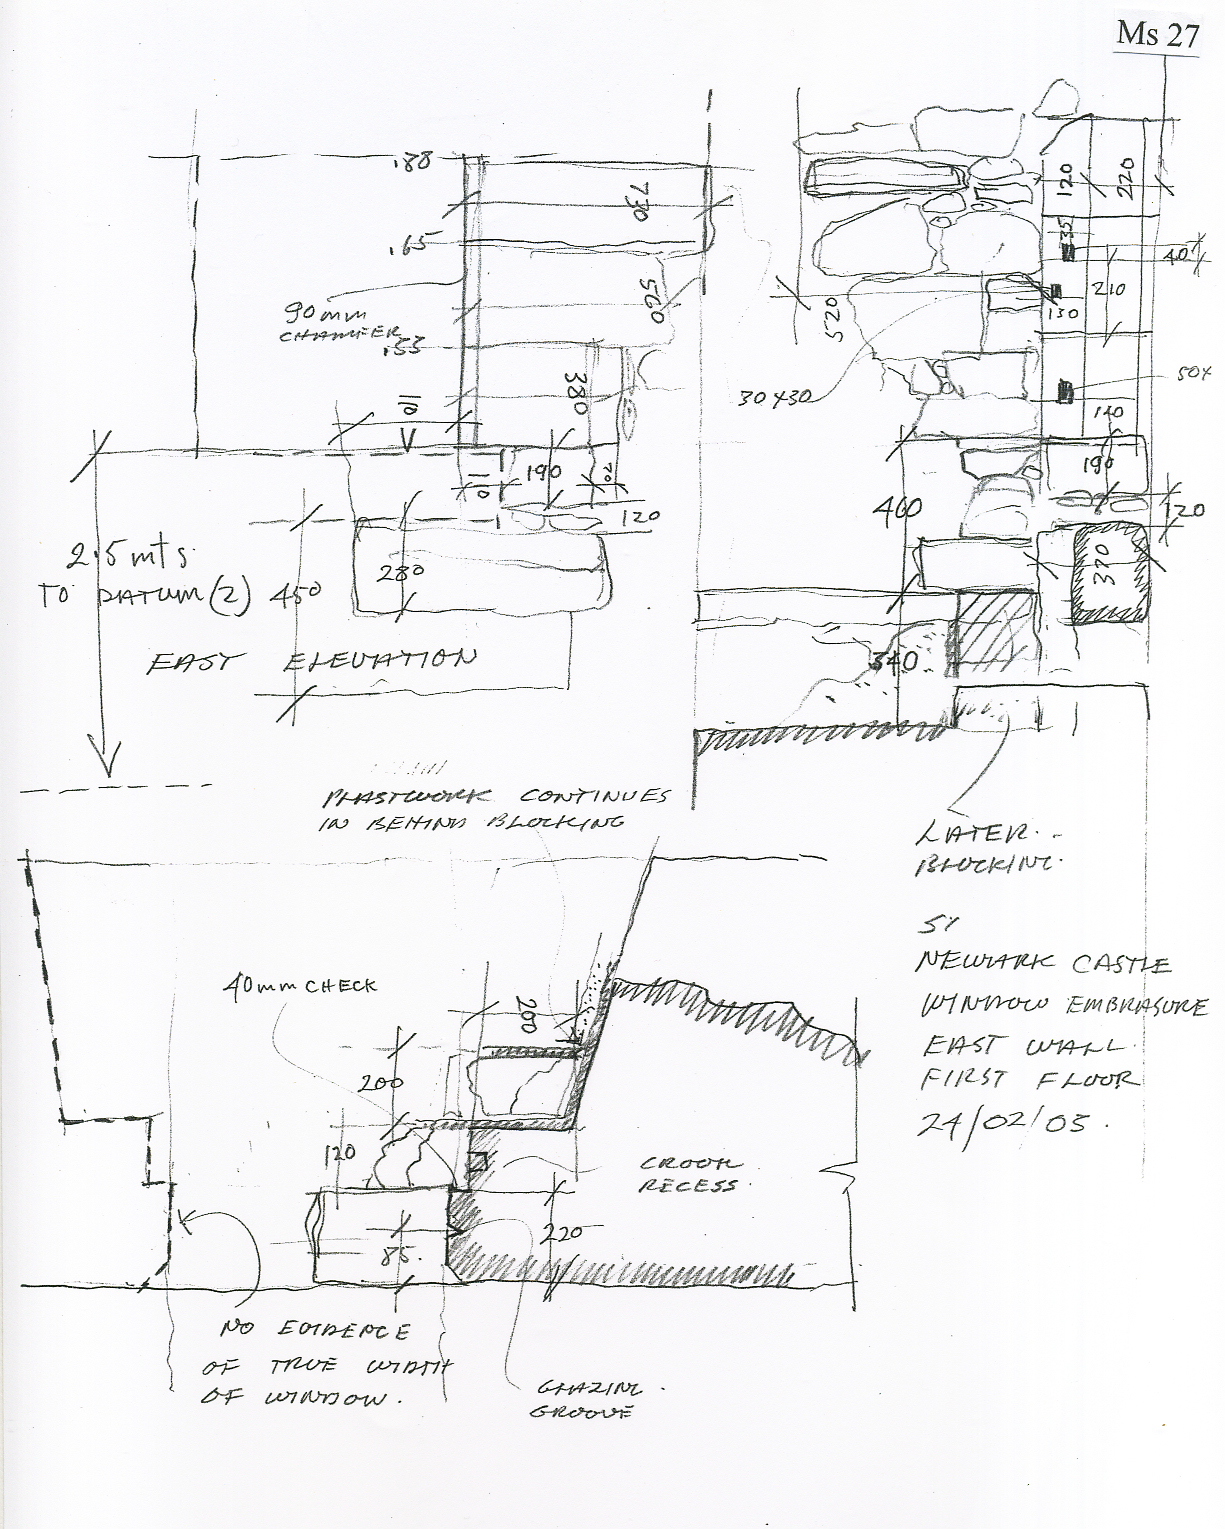 Ms 27
.88
730
.65
560
90mm
CHAMFER
.33
380
110
190
110
70
120
280
450
2.5 mts
TO DATUM (2)
EAST ELEVATION
120
220
35
40
210
130
520
30 x 30
50x
120
190
460
120
370
340
PLASTWORK CONTINUES
IN BEHIND BLOCKING
LATER
BLOCKING.
NEWARK CASTLE
WINDOW EMBRASURE
EAST WALL
FIRST FLOOR
24/02/03.
40mm CHECK
200
200
120
CROOK
RECESS.
220
85.
NO EVIDENCE
OF TRUE WIDTH
OF WINDOW.
GLAZING
GROOVE